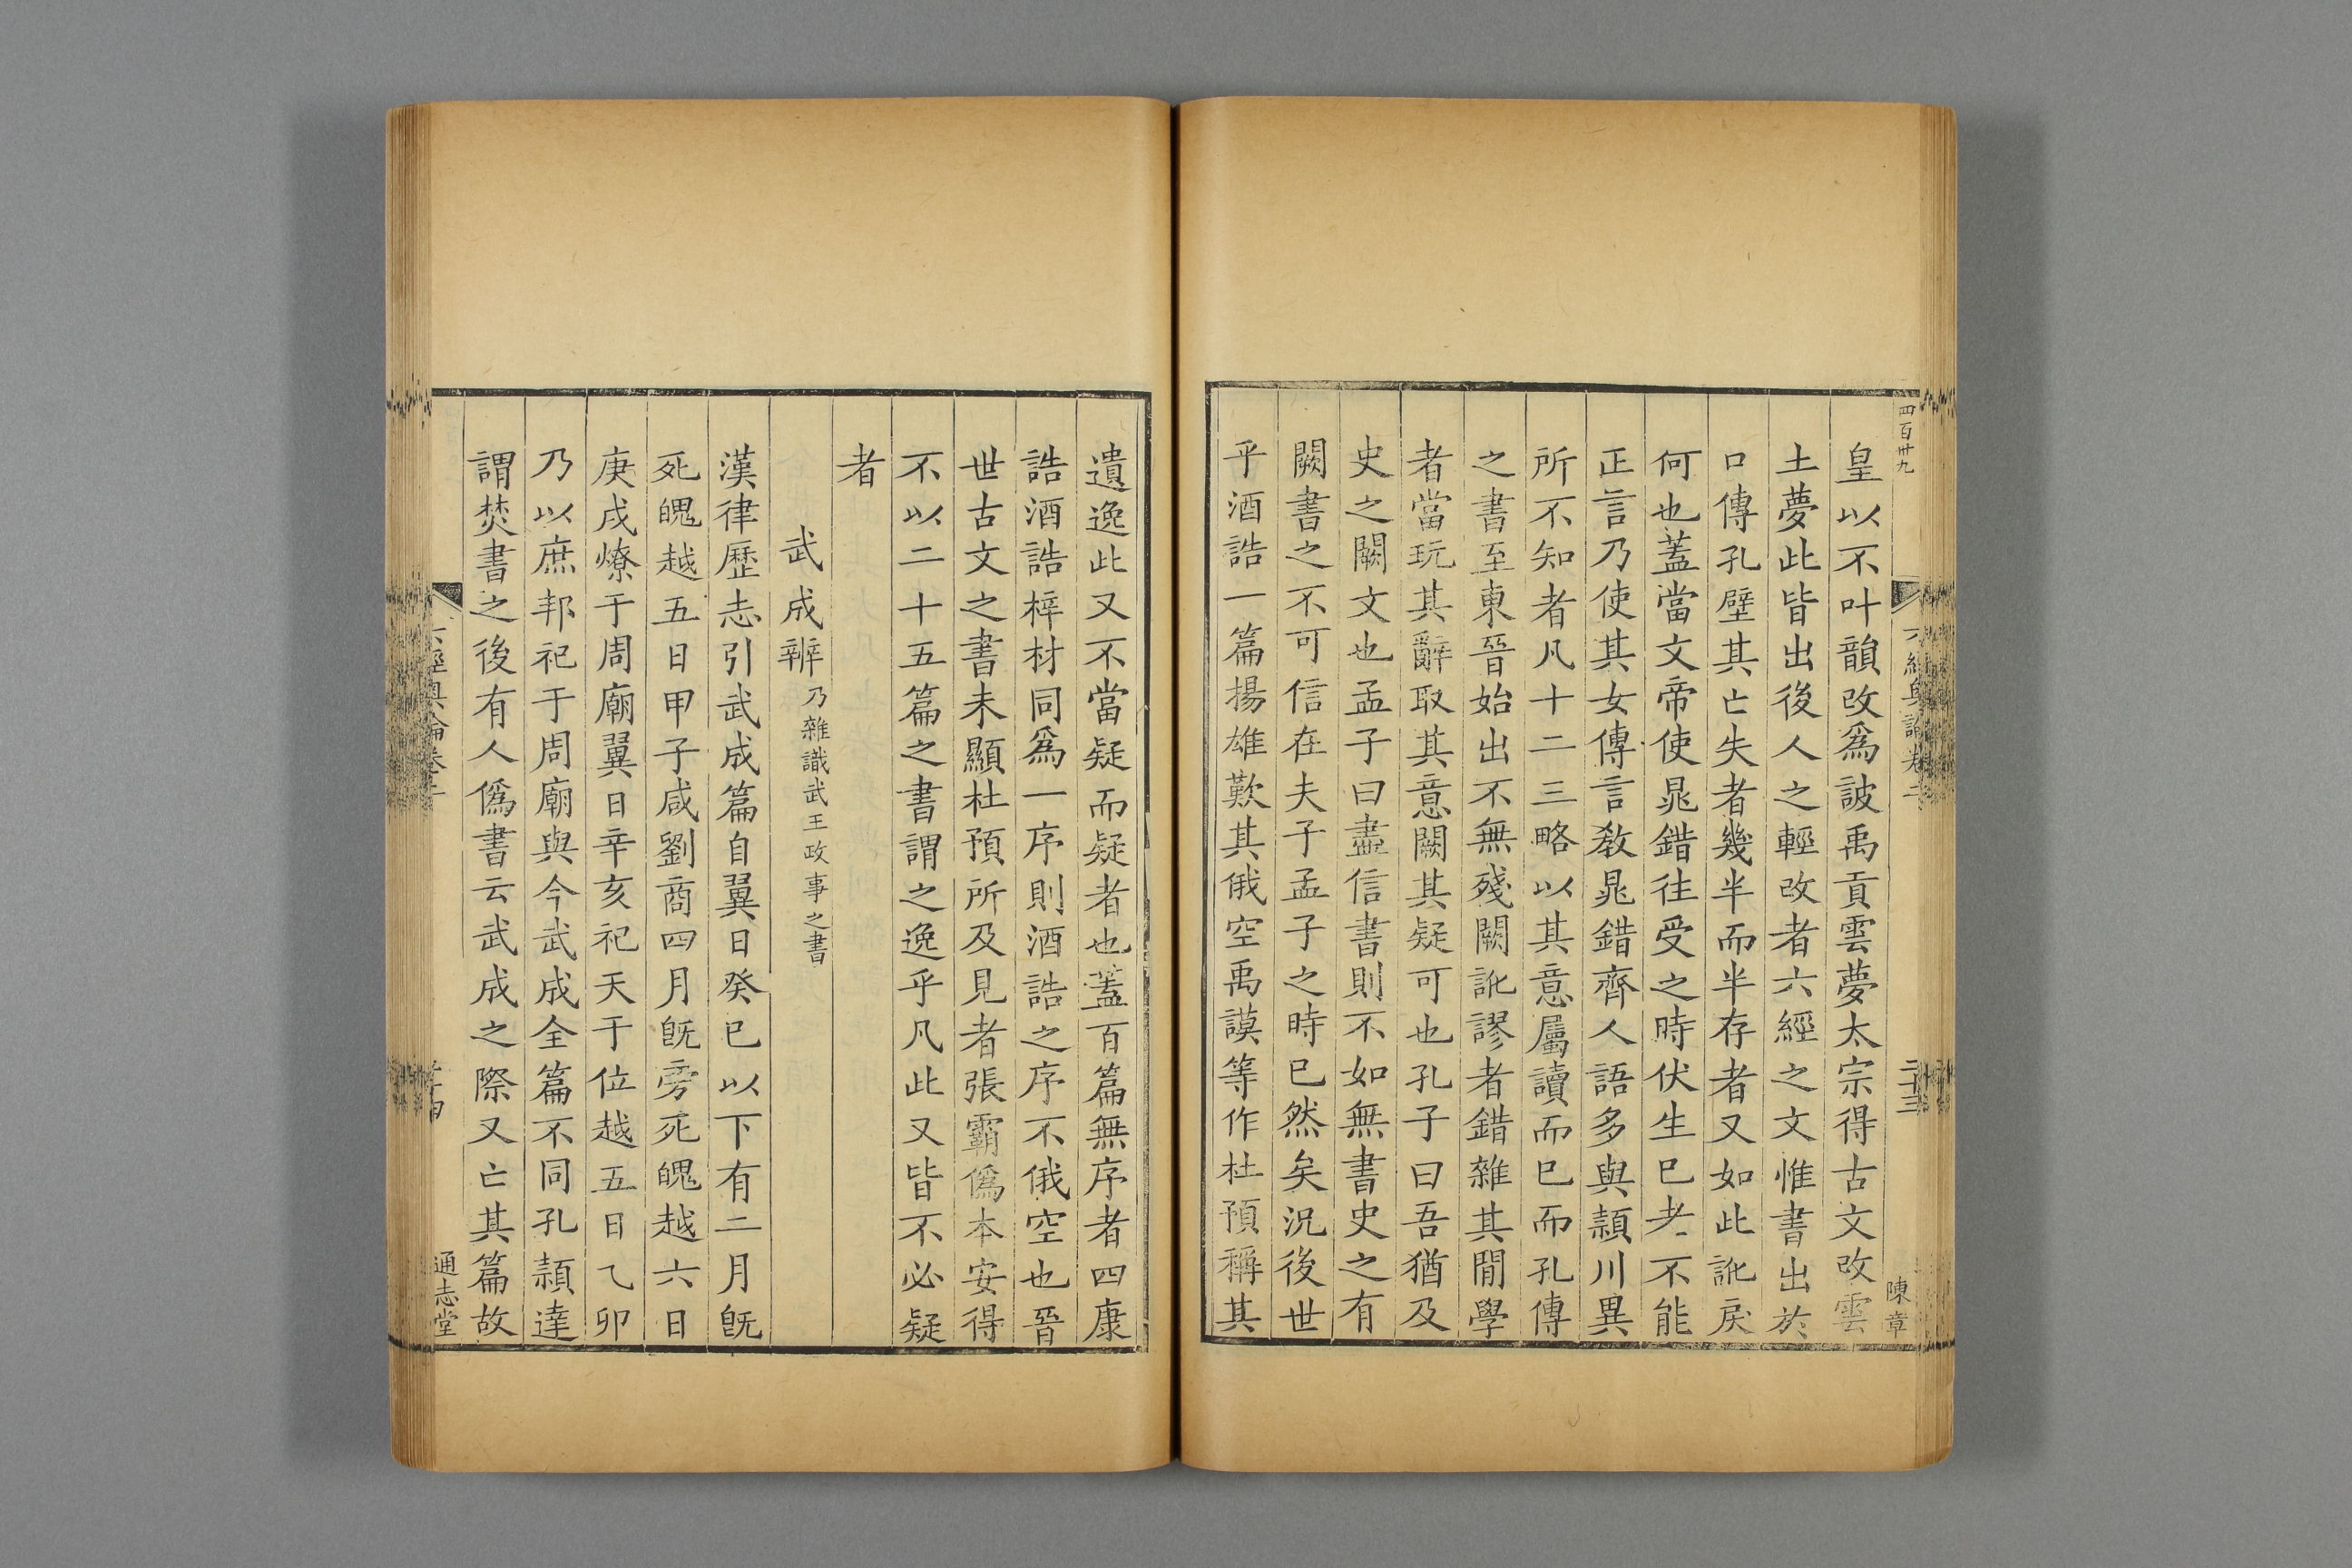 四百卅九
六經奧論卷二
二十三
陳章
皇以不叶韻改爲詖禹貢雲夢太宗得古文改雲
土夢此皆出後人之輕改者六經之文惟書出於
口傳孔壁其亡失者幾半而半存者又如此訛戾
何也蓋當文帝使晁錯往受之時伏生已老不能
正言乃使其女傳言教晁錯齊人語多與潁川異
所不知者凡十二三略以其意屬讀而已而孔傳
之書至東晉始出不無殘闕訛謬者錯雜其閒學
者當玩其辭取其意闕其疑可也孔子曰吾猶及
史之闕文也孟子曰盡信書則不如無書史之有
闕書之不可信在夫子孟子之時已然矣況後世
乎酒誥一篇揚雄歎其俄空禹謨等作杜預稱其
遺逸此又不當疑而疑者也蓋百篇無序者四康
誥酒誥梓材同爲一序則酒誥之序不俄空也晉
世古文之書未顯杜預所及見者張霸僞本安得
不以二十五篇之書謂之逸乎凡此又皆不必疑
者
武成辨乃雜識武王政事之書
漢律歷志引武成篇自翼日癸巳以下有二月旣
死魄越五日甲子咸劉商四月旣旁死魄越六日
庚戌燎于周廟翼日辛亥祀天于位越五日乙卯
乃以庶邦祀于周廟與今武成全篇不同孔穎達
謂焚書之後有人僞書云武成之際又亡其篇故
六經奧論卷二
通志堂